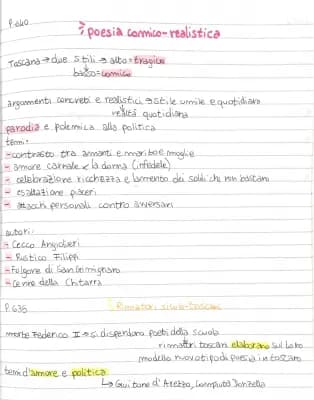 P. 640
poesia comico-realistica
Toscana → due stili → alto = tragico
basso = comico
argomenti concreti e realistici → stile umile e quotidiano
realtà quotidiana
parodia e polemica alla politica
temi:
- contrasto tra amanti e marito e moglie
- amore carnale x la donna (infedele)
- celebrazione ricchezza e lamento dei soldi che non bastano
- esaltazione piaceri
- attacchi personali contro avversari
autori:
- Cecco Angiolieri
- Rustico Filippi
- Folgore di San Gimignano
- Cenne della Chitarra
P. 635
Rimatori siculo-toscani
morte Federico II → si disperdono poeti della scuola
rimatori toscani elaborano sul loro
modello nuovo tipo di poesia in toscano
temi d'amore e politica
↳ Guittone d'Arezzo, Compiuta Donzella